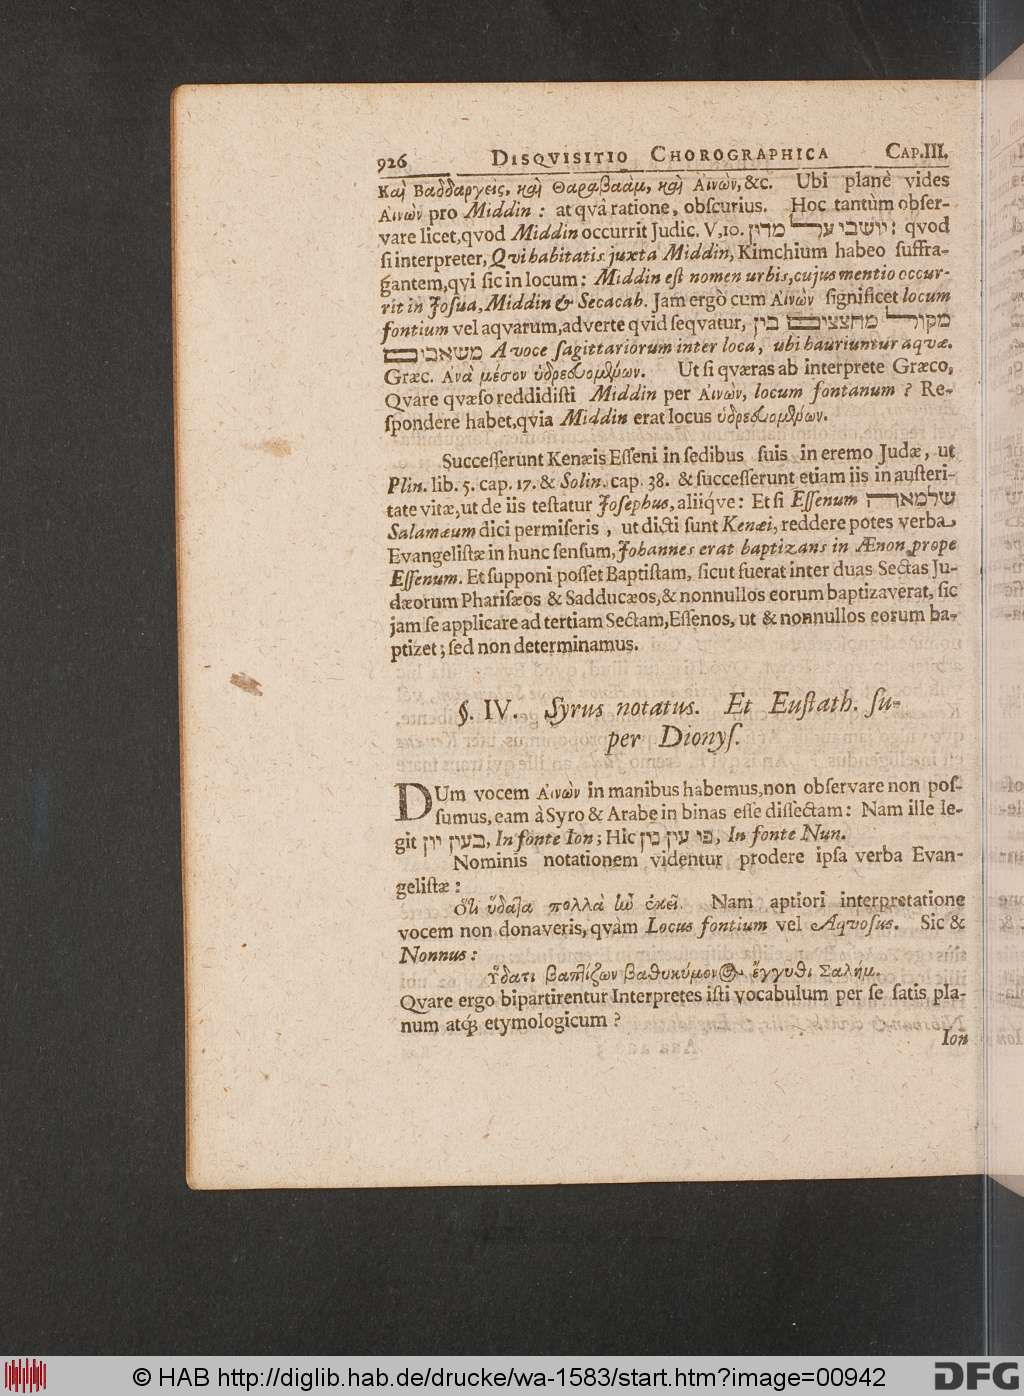 926 DISQVISITIO CHOROGRAPHICA CAP.III.
Καὶ Βαδδαργεὶς, καὶ Θαραβαὰμ, καὶ Αἰνὼν, &c. Ubi planè vides
Αἰνὼν pro Middin : at qvâ ratione, obſcurius. Hoc tantùm obſer-
vare licet, qvod Middin occurrit Judic. V, 10. יושבי על מדין : qvod
ſi interpreter, Qvi habitatis juxta Middin, Kimchium habeo ſuffra-
gantem, qvi ſic in locum : Middin eſt nomen urbis, cujus mentio occur-
rit in Joſua, Middin & Secacah. Jam ergò cum Αἰνὼν ſignificet locum
fontium vel aqvarum, adverte qvid ſeqvatur, מקול מחצצים בין
משאבים A voce ſagittariorum inter loca, ubi hauriuntur aqvæ.
Græc. Ἀνὰ μέσον ὑδρευομένων. Ut ſi qværas ab interprete Græco,
Qvare qvæſo reddidiſti Middin per Αἰνὼν, locum fontanum ? Re-
ſpondere habet, qvia Middin erat locus ὑδρευομένων.
Succeſſerunt Kenæis Eſſeni in ſedibus ſuis in eremo Judæ, ut
Plin. lib. 5. cap. 17. & Solin. cap. 38. & ſucceſſerunt etiam iis in auſteri-
tate vitæ, ut de iis teſtatur Joſephus, aliiq́ve : Et ſi Eſſenum שלמאה
Salamæum dici permiſeris , ut dicti ſunt Kenæi, reddere potes verba
Evangeliſtæ in hunc ſenſum, Johannes erat baptizans in Ænon prope
Eſſenum. Et ſupponi poſſet Baptiſtam, ſicut fuerat inter duas Sectas Ju-
dæorum Phariſæos & Sadducæos, & nonnullos eorum baptizaverat, ſic
jam ſe applicare ad tertiam Sectam, Eſſenos, ut & nonnullos eorum ba-
ptizet ; ſed non determinamus.
§. IV. Syrus notatus. Et Euſtath. ſu-
per Dionyſ.
DUm vocem Αἰνὼν in manibus habemus, non obſervare non poſ-
ſumus, eam à Syro & Arabe in binas eſſe diſſectam : Nam ille le-
git בעין יון, In fonte Ion ; Hic פי עין נון, In fonte Nun.
Nominis notationem videntur prodere ipſa verba Evan-
geliſtæ :
Ὅτι ὕδατα πολλὰ ἦν ἐκεῖ. Nam aptiori interpretatione
vocem non donaveris, qvàm Locus fontium vel Aqvoſus. Sic &
Nonnus :
Ὕδατι βαπτίζων βαθυκύμονος ἔγγυθι Σαλήμ.
Qvare ergo bipartirentur Interpretes iſti vocabulum per ſe ſatis pla-
num atq́; etymologicum ?
Ion
© HAB http://diglib.hab.de/drucke/wa-1583/start.htm?image=00942
DFG